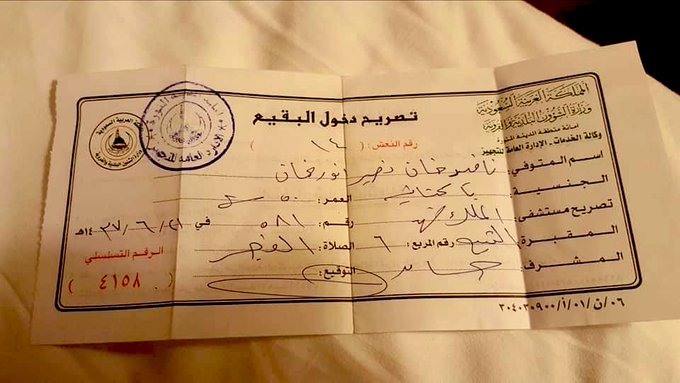 المملكة العربية السعودية
وزارة الشؤون البلدية والقروية
أمانة منطقة المدينة المنورة
وكالة الخدمات - الإدارة العامة للتجهيز
تصريح دخول البقيع
رقم النعش: ( ١٤ )
اسم المتوفي: خان نصير انور خان
الجنسية: العمر: ٥٠
تصريح مستشفى: الملك فهد رقم: ٥٨١ في ٢١ / ٦ / ١٤٣٧هـ
المقبرة: البقيع رقم المربع: ٦ الصلاة: الفجر
المشرف: التوقيع:
الرقم التسلسلي
( ٤١٥٨ )
٠٦/ن/٠١/أ/٣٠٤٠٣٠٩٠٠